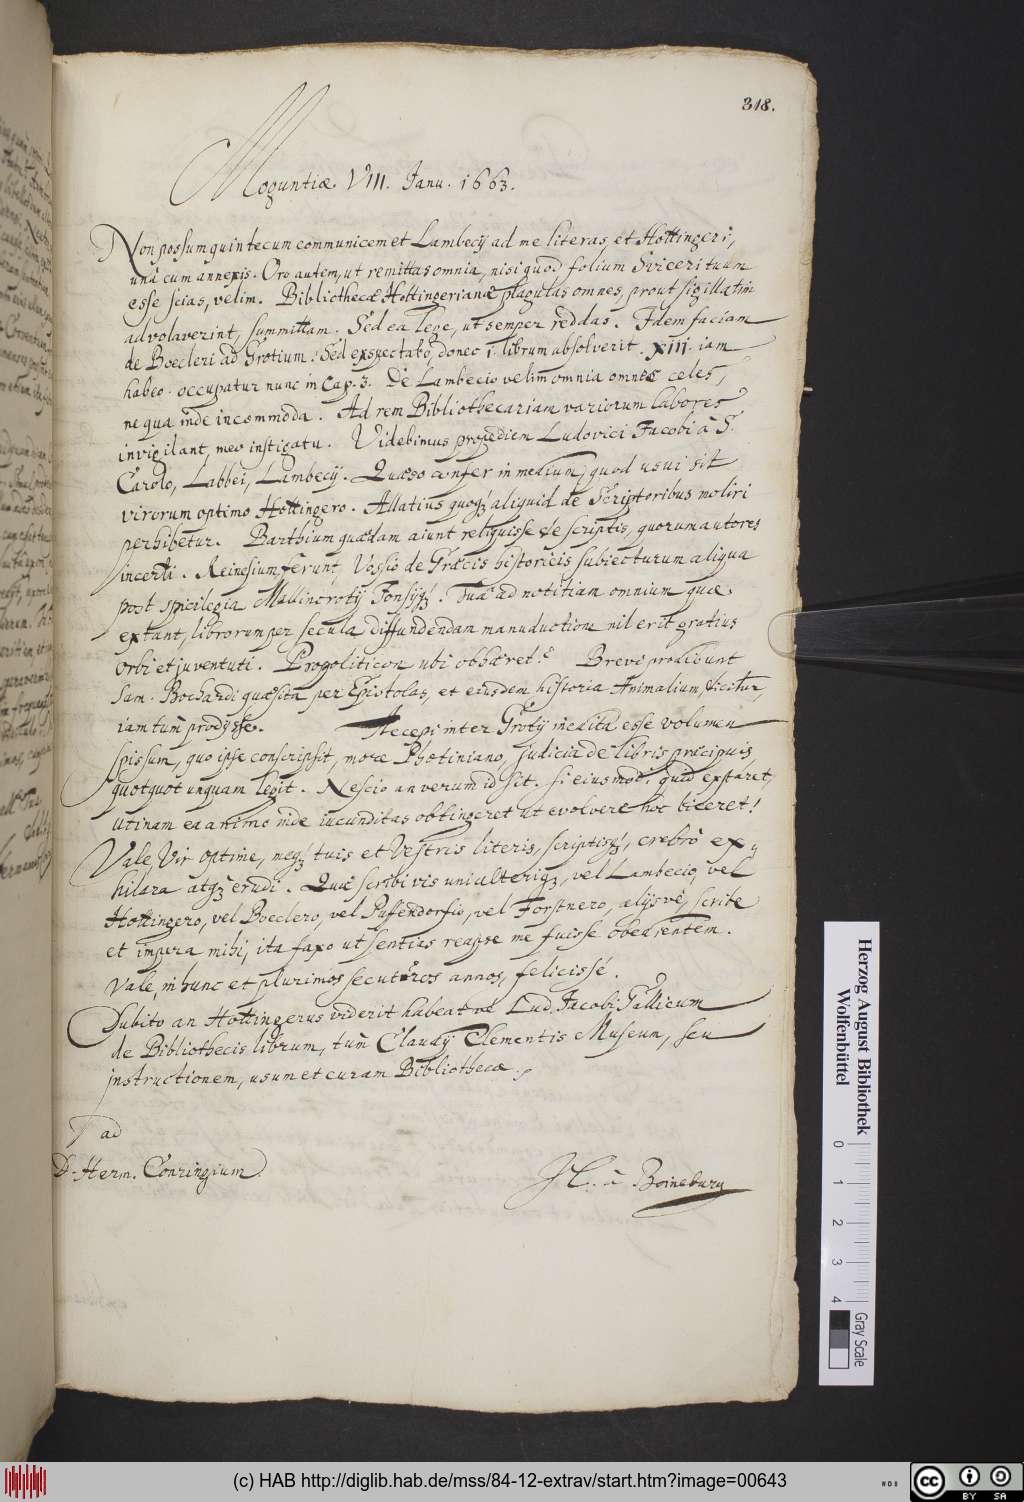 318.
Moguntiæ. VIII. Janu. 1663.
Non possum quin tecum communicem et Lambecij ad me literas, et Hottingeri,
unà cum annexis. Oro autem, ut remittas omnia, nisi quod folium Sviceri tuum
esse scias, velim. Bibliothecæ Hottingerianæ plagulas omnes, prout sigillatim
advolaverint, summittam. Sed ea lege, ut semper reddas. Idem faciam
de Boecleri ad Grotium. Sed exspectato, donec 1. librum absolverit. XIII. iam
habeo. occupatur nunc in Cap. 3. De Lambecio velim omnia omnes celes,
ne qua inde incommoda. Ad rem Bibliothecariam variorum labores
invigilant, meo instigatu. Videbimus propediem Ludovici Jacobi à S.
Carolo, Labbei, Lambecij. Quæso confer in medium, quod usui sit
virorum optimo Hottingero. Allatius quoq; aliquid de Scriptoribus moliri
perhibetur. Barthium quædam aiunt reliquisse de scriptis, quorum autores
incerti. Reinesium ferunt, Vossio de Græcis historicis subiecturum aliqua
post spicilegia Mallincrotij Fonsijq;. Tuâ ad notitiam omnium quæ
extant, librorum per secula diffundendam manuductione nil erit gratius
orbi et juventuti. Propoliticon ubi obhæret? Brevi prodibunt
Sam. Bochardi quæsita per Epistolas, et eiusdem historia Animalium, dicitur,
iam tum prodijsse. Accepi inter Grotij inedita esse volumen
spissum, quo ipse conscripsit, more Photiniano, judicia de libris præcipuis,
quotquot unquam legit. Nescio an verum id sit. si eiusmodi quid exstaret,
utinam ea animo inde iucunditas obtingeret ut evolvere hoc liceret!
Vale, Vir optime, neq; tuis et Vestris literis, scriptisq;, crebrò ex-
hilara atq; erudi. Quæ scribi vis uni alteriq;, vel Lambecio, vel
Hottingero, vel Boeclero, vel Pufendorfio, vel Forstnero, alijsvè, scribe
et impera mihi, ita faxo ut sentias reapse me fuisse obedientem.
Vale, in hunc et plurimos secuturos annos, felicissè.
Dubito an Hottingerus viderit habeatvè Lud. Jacobi Gallicum
de Bibliothecis librum, tùm Claudij Clementis Museum, seu
instructionem, usum et curam Bibliothecæ.
ad
D. Herm. Conringium
JC. à Boineburg
Herzog August Bibliothek
Wolfenbüttel
0 1 2 3 4
Gray Scale
(c) HAB http://diglib.hab.de/mss/84-12-extrav/start.htm?image=00643
cc BY SA